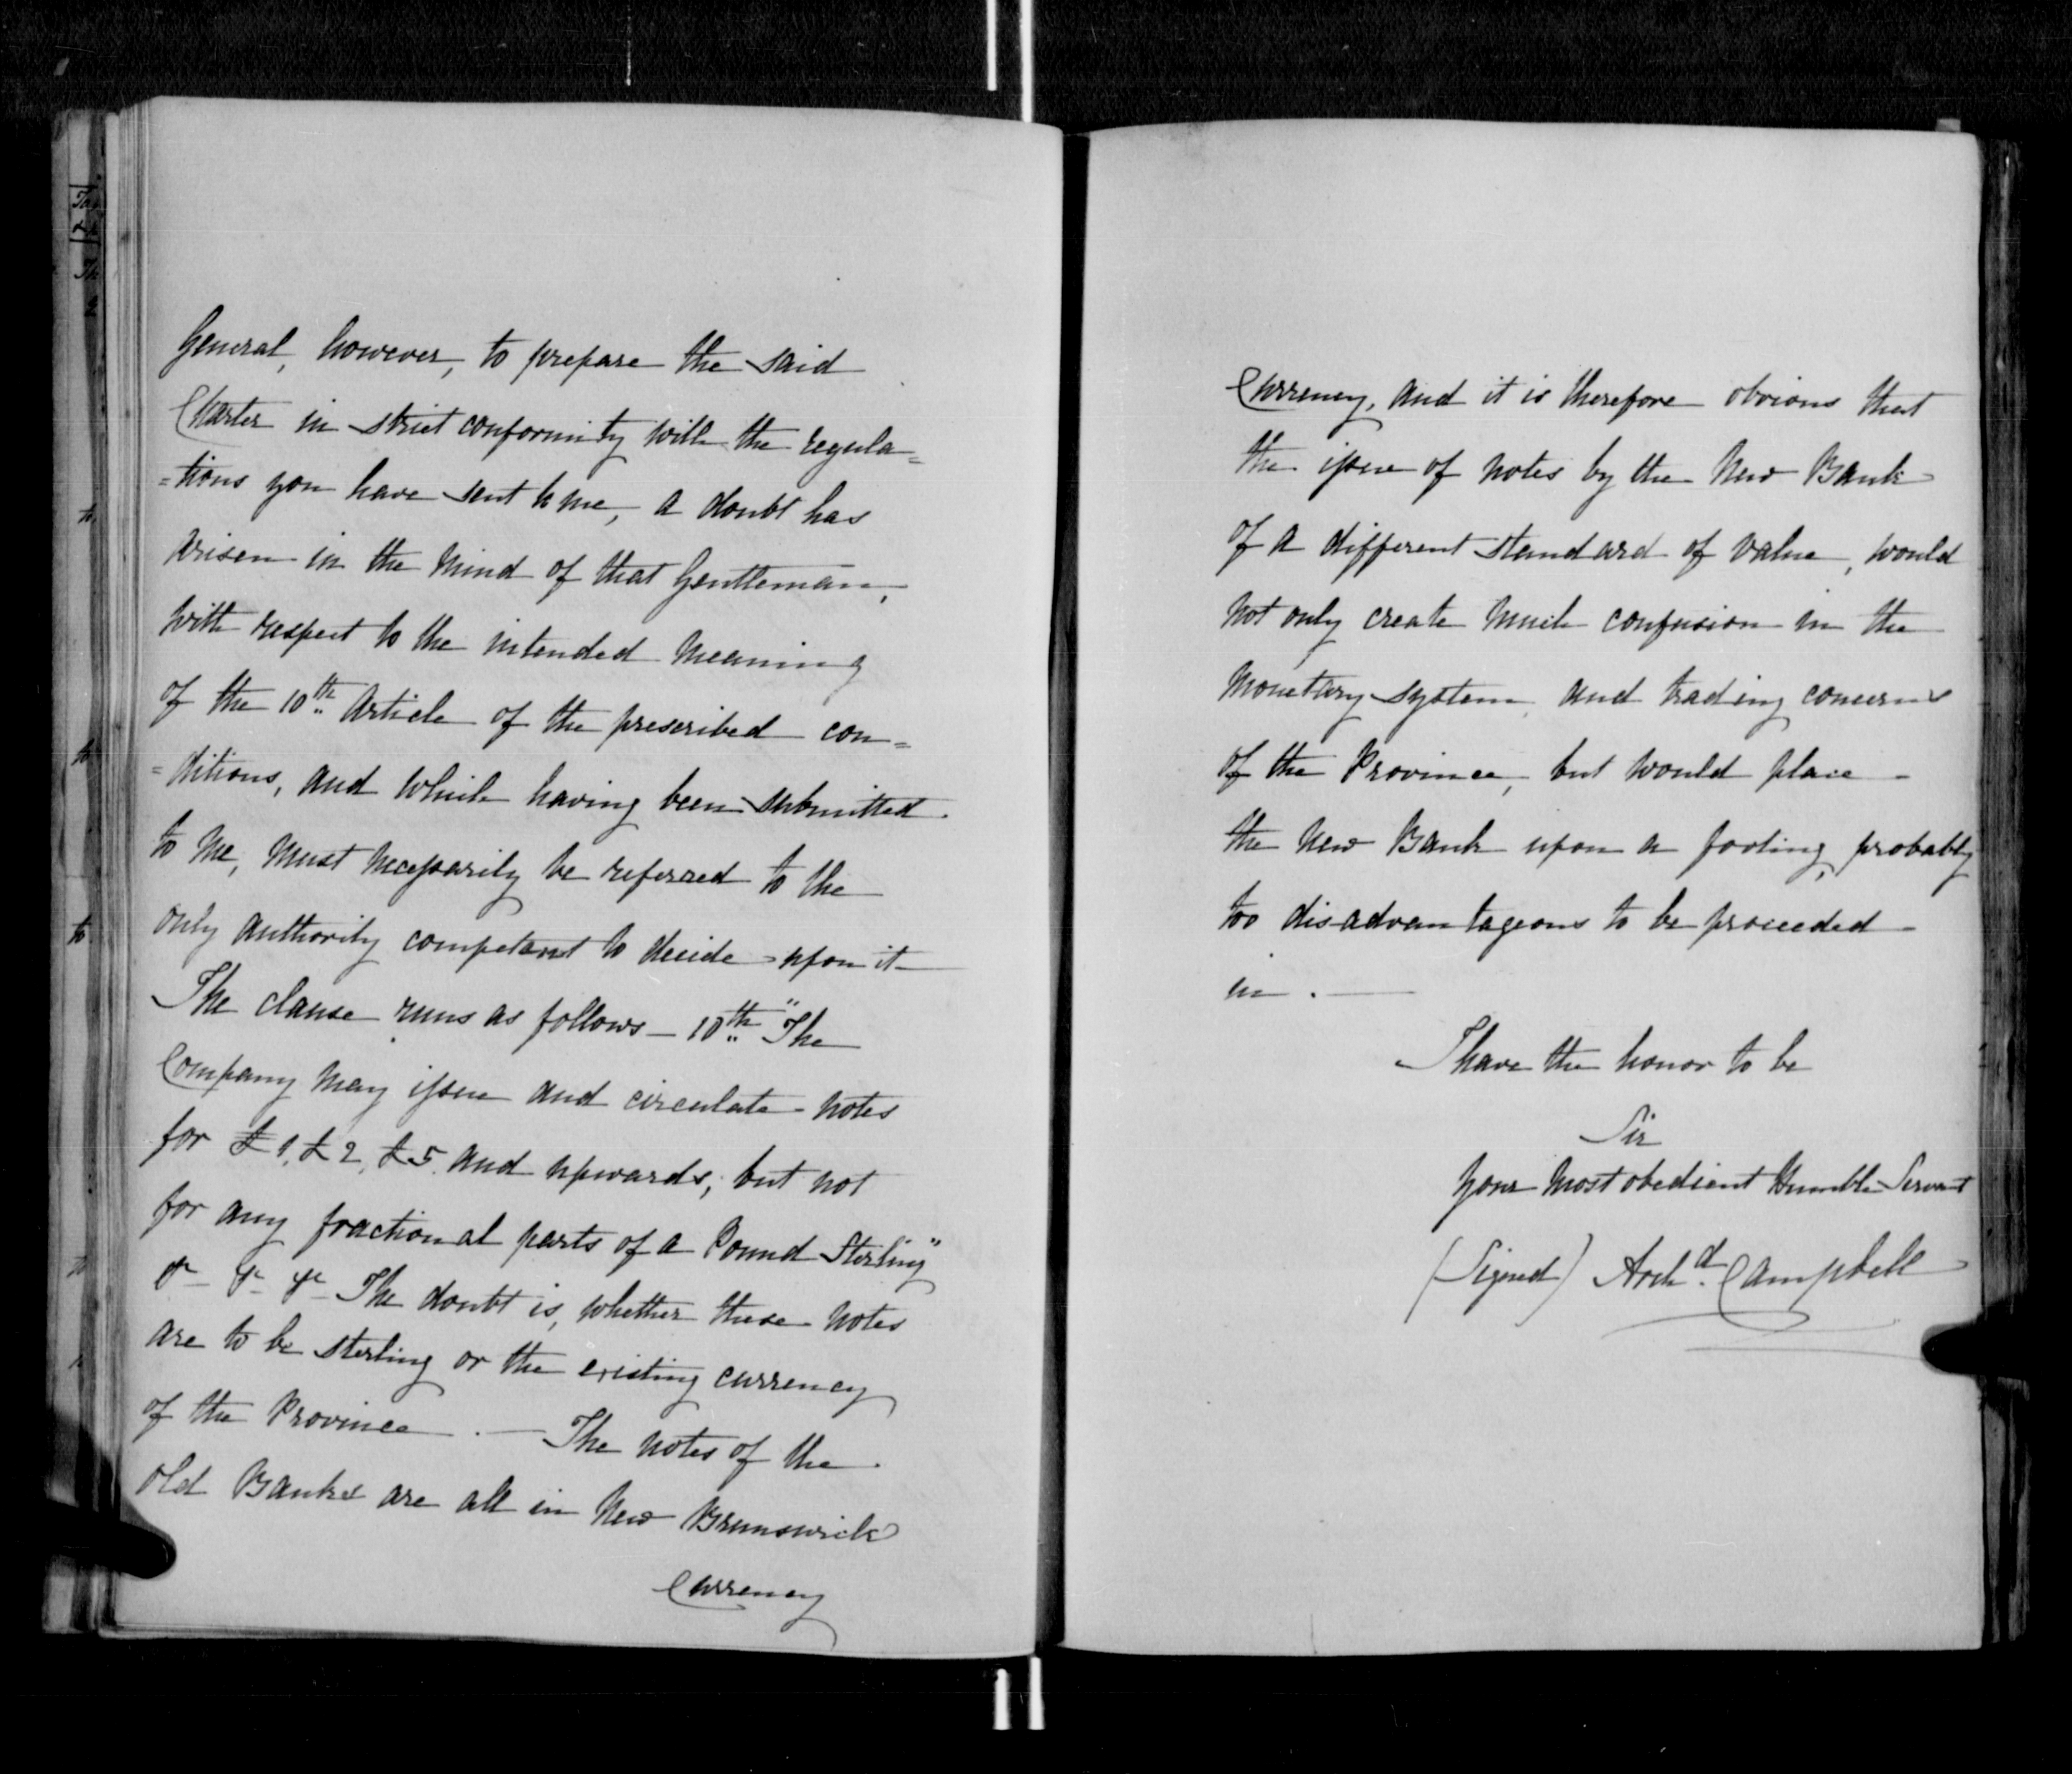 General, however, to prepare the said
Charter in strict conformity with the regula=
=tions you have sent to me, a doubt has
arisen in the mind of that Gentleman,
with respect to the intended meaning
of the 10th Article of the prescribed con=
=ditions, and which having been submitted
to me, must necessarily be referred to the
only authority competent to decide upon it
The clause runs as follows – 10th "The
Company may issue and circulate notes
for £1, £2, £5 and upwards, but not
for any fractional parts of a Pound Sterling"
The doubt is, whether these notes
are to be sterling or the existing currency
of the Province. — The notes of the
old Banks are all in New Brunswick
Currency
Currency, and it is therefore obvious that
the issue of notes by the New Bank
of a different standard of value, would
not only create much confusion in the
monetary system, and trading concerns
of the Province, but would place
the New Bank upon a footing, probably
too disadvantageous to be proceeded
in. —
I have the honor to be
Sir
Your most obedient Humble Servant
(Signed) Archd. Campbell